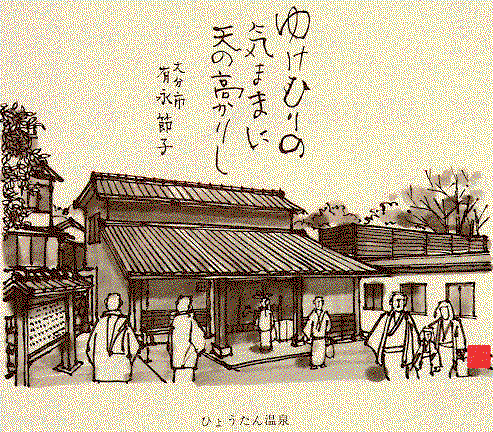 ゆけむりの
気ままに
天の高かりし
大分市
有永節子
ひょうたん温泉